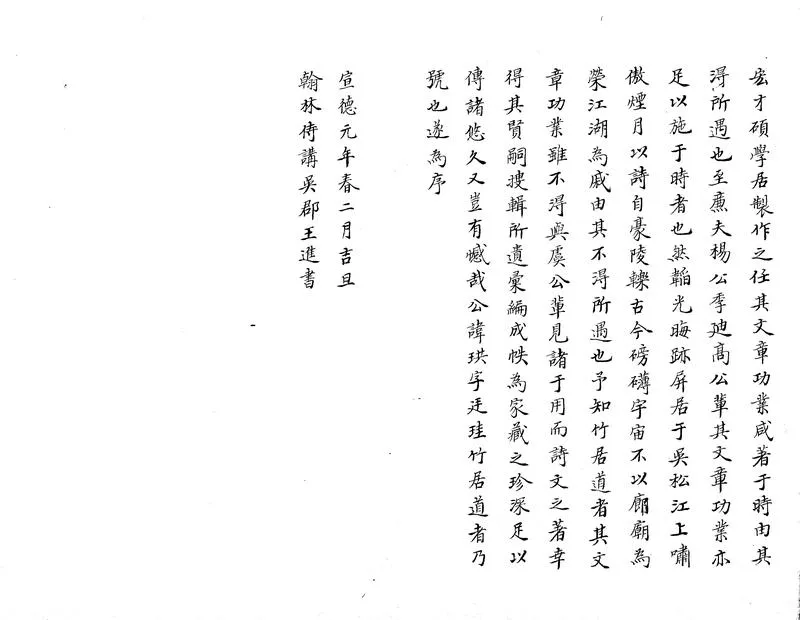 宏才碩學居製作之任其文章功業咸著于時由其
淂所遇也至廉夫楊公季廸髙公軰其文章功業亦
足以施于時者也然韜光晦跡屏居于吳松江上嘯
傲煙月以詩自豪陵轢古今磅礴宇宙不以廊廟為
榮江湖為戚由其不淂所遇也予知竹居道者其文
章功業雖不淂與虞公軰見諸于用而詩文之著幸
得其賢嗣搜輯所遺彙編成帙為家藏之珍深足以
傳諸悠久又豈有憾哉公諱珙字廷珪竹居道者乃
號也遂為序
宣德元年春二月吉旦
翰林侍講吳郡王進書